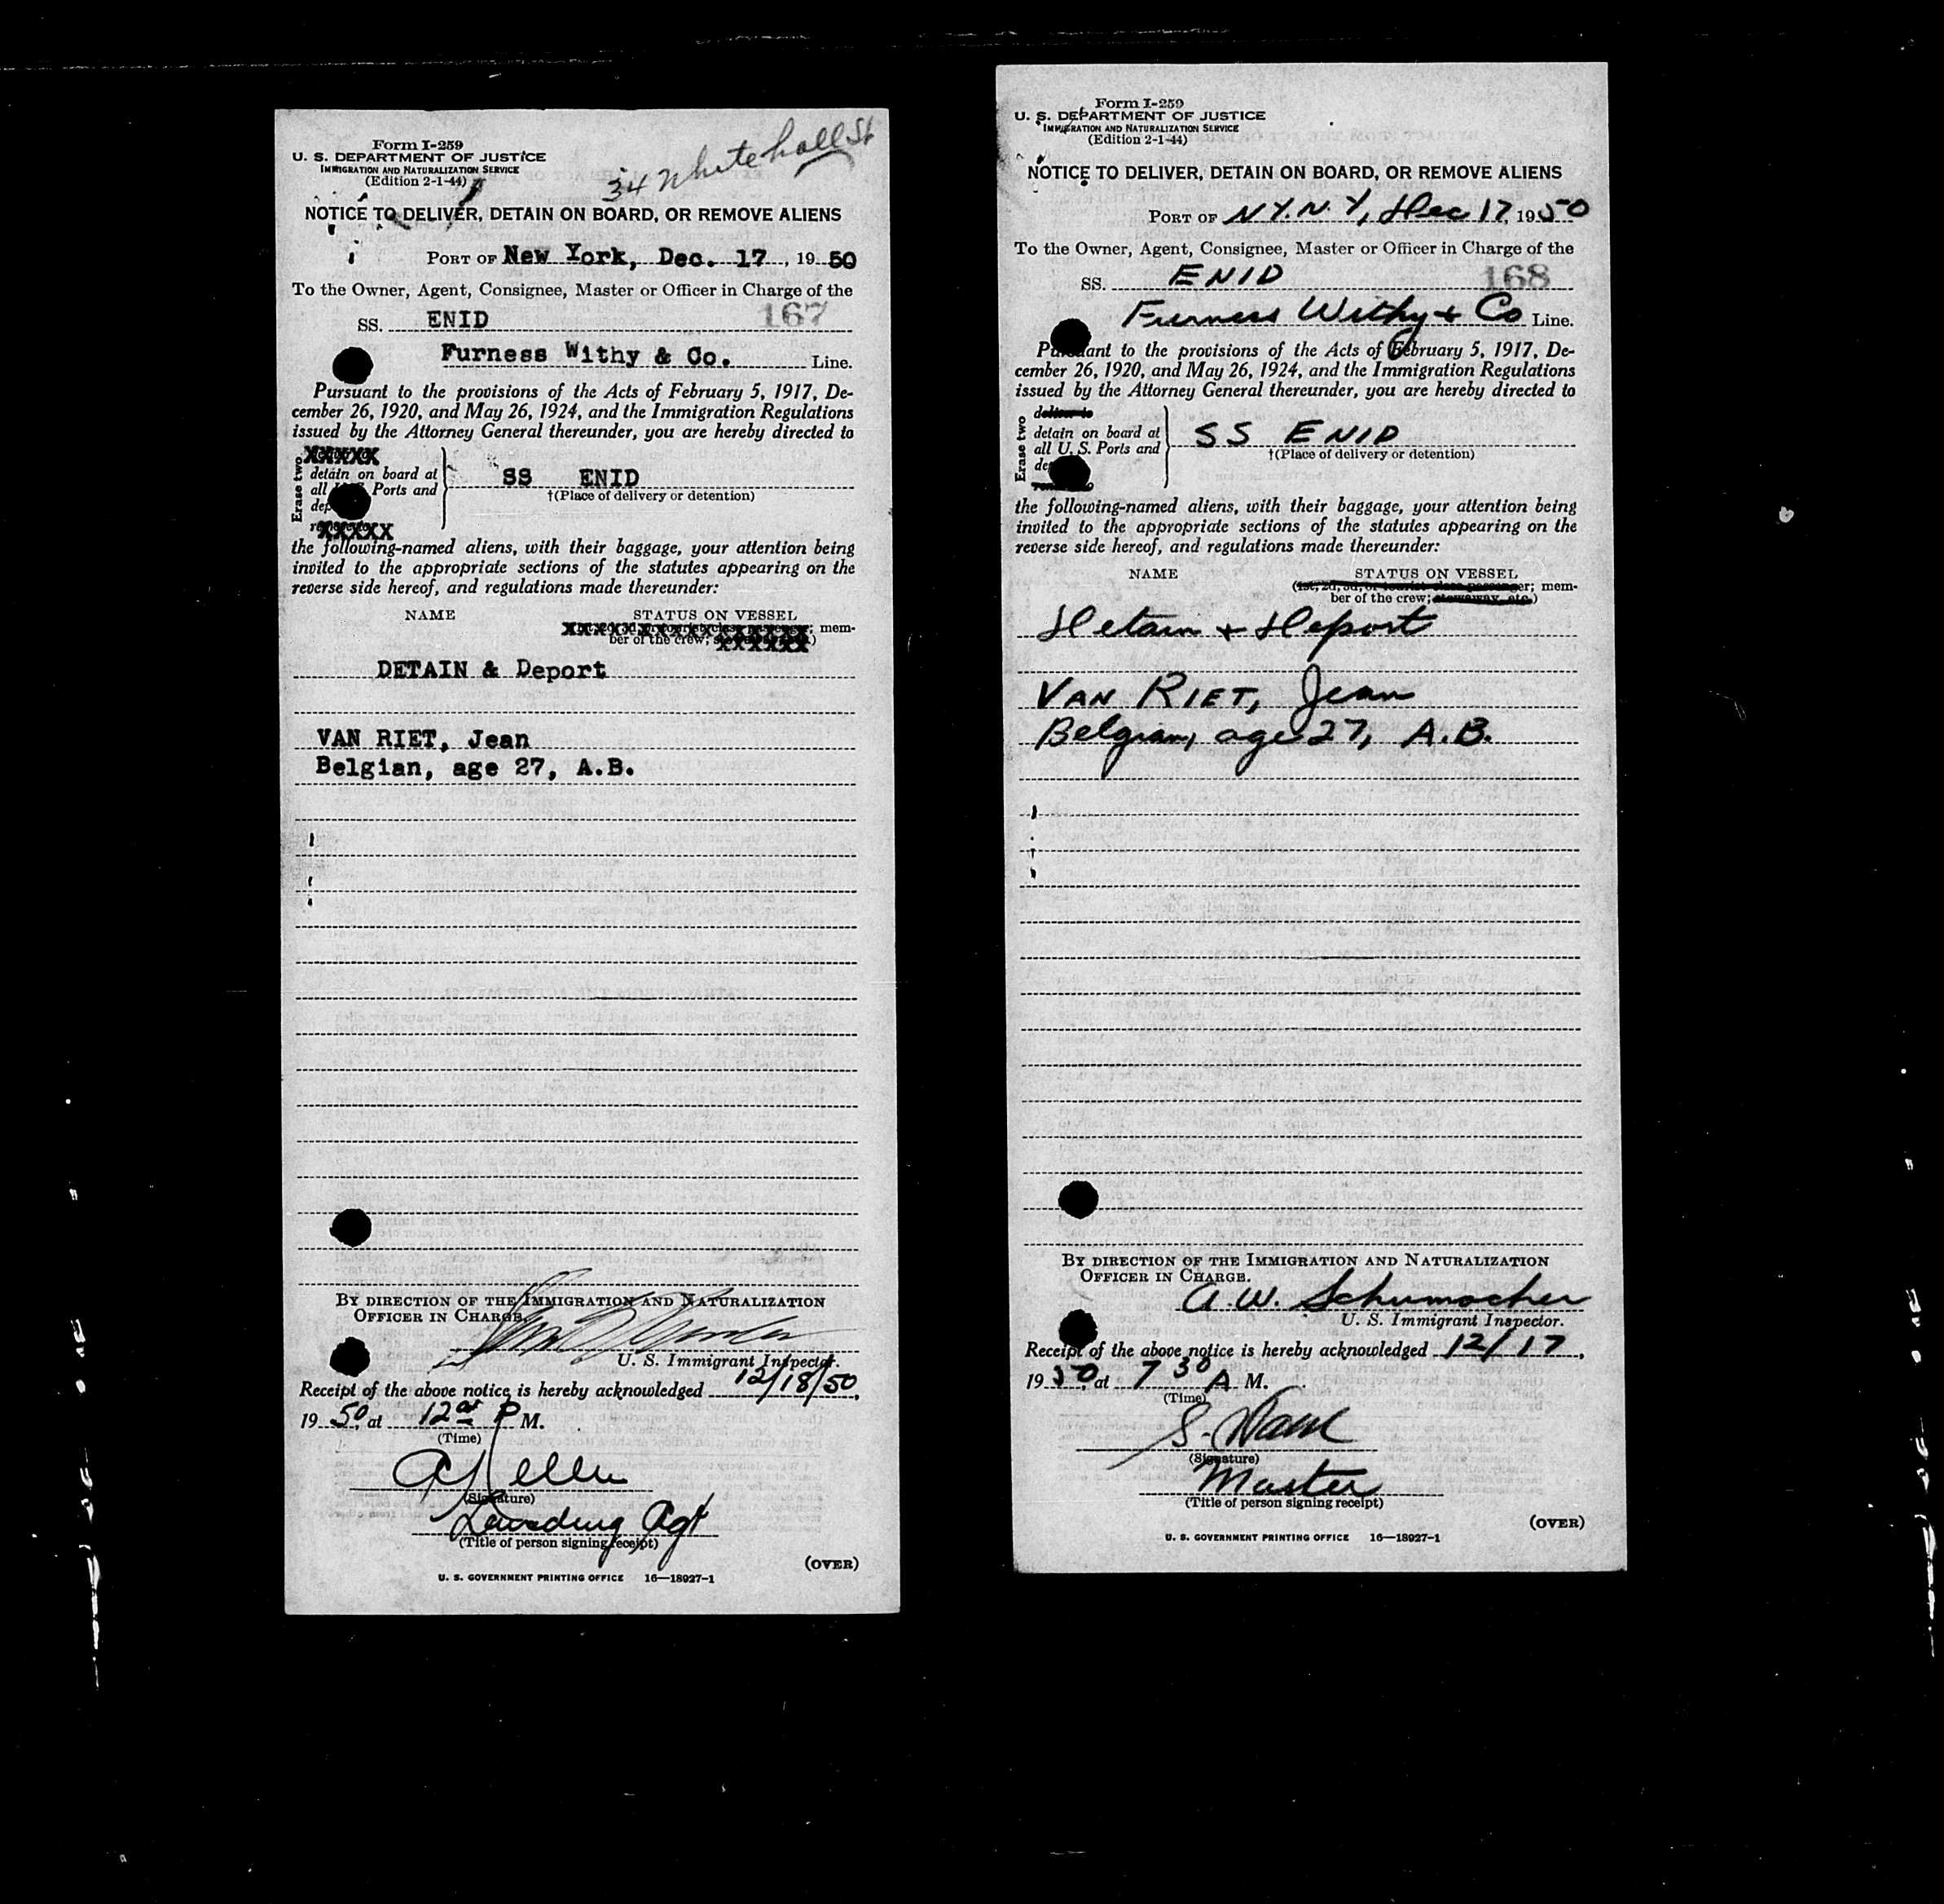 34 Whitehall St
Form I-259
U. S. DEPARTMENT OF JUSTICE
IMMIGRATION AND NATURALIZATION SERVICE
(Edition 2-1-44)
NOTICE TO DELIVER, DETAIN ON BOARD, OR REMOVE ALIENS
PORT OF New York, Dec. 17, 19 50
To the Owner, Agent, Consignee, Master or Officer in Charge of the
167
SS. ENID
Furness Withy & Co. Line.
Pursuant to the provisions of the Acts of February 5, 1917, De-
cember 26, 1920, and May 26, 1924, and the Immigration Regulations
issued by the Attorney General thereunder, you are hereby directed to
Erase two
XXXXX
detain on board at
all Ports and
dep
XXXXX
SS ENID
†(Place of delivery or detention)
the following-named aliens, with their baggage, your attention being
invited to the appropriate sections of the statutes appearing on the
reverse side hereof, and regulations made thereunder:
NAME STATUS ON VESSEL
mem-
ber of the crew;
DETAIN & Deport
VAN RIET, Jean
Belgian, age 27, A.B.
BY DIRECTION OF THE IMMIGRATION AND NATURALIZATION
OFFICER IN CHARGE.
U. S. Immigrant Inspector.
Receipt of the above notice is hereby acknowledged 12/18/50,
19 50, at 12 P M.
(Time)
(Signature)
Landing Agt
(Title of person signing receipt)
(OVER)
U. S. GOVERNMENT PRINTING OFFICE 16—18927-1
Form I-259
U. S. DEPARTMENT OF JUSTICE
IMMIGRATION AND NATURALIZATION SERVICE
(Edition 2-1-44)
NOTICE TO DELIVER, DETAIN ON BOARD, OR REMOVE ALIENS
PORT OF N.Y. N.Y, Dec 17, 1950
To the Owner, Agent, Consignee, Master or Officer in Charge of the
SS. ENID 168
Furness Withy & Co Line.
Pursuant to the provisions of the Acts of February 5, 1917, De-
cember 26, 1920, and May 26, 1924, and the Immigration Regulations
issued by the Attorney General thereunder, you are hereby directed to
Erase two
deliver to
detain on board at
all U. S. Ports and
de
SS ENID
†(Place of delivery or detention)
the following-named aliens, with their baggage, your attention being
invited to the appropriate sections of the statutes appearing on the
reverse side hereof, and regulations made thereunder:
NAME STATUS ON VESSEL
(1st, 2d, 3d, or tourist class passenger; mem-
ber of the crew; stowaway, etc.)
Detain + Deport
VAN RIET, Jean
Belgian, age 27, A.B.
BY DIRECTION OF THE IMMIGRATION AND NATURALIZATION
OFFICER IN CHARGE.
A. W. Schumacher
U. S. Immigrant Inspector.
Receipt of the above notice is hereby acknowledged 12/17,
19 50, at 7 30 A M.
(Time)
(Signature)
Master
(Title of person signing receipt)
(OVER)
U. S. GOVERNMENT PRINTING OFFICE 16—18927-1